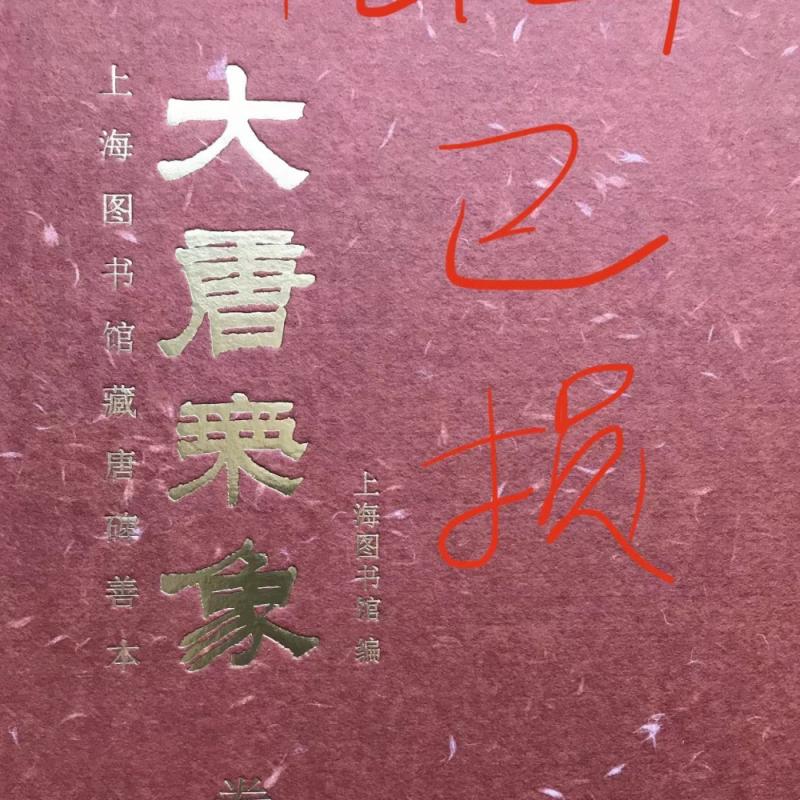 上海图书馆藏唐碑善本
大唐象
上海图书馆 编
已
损